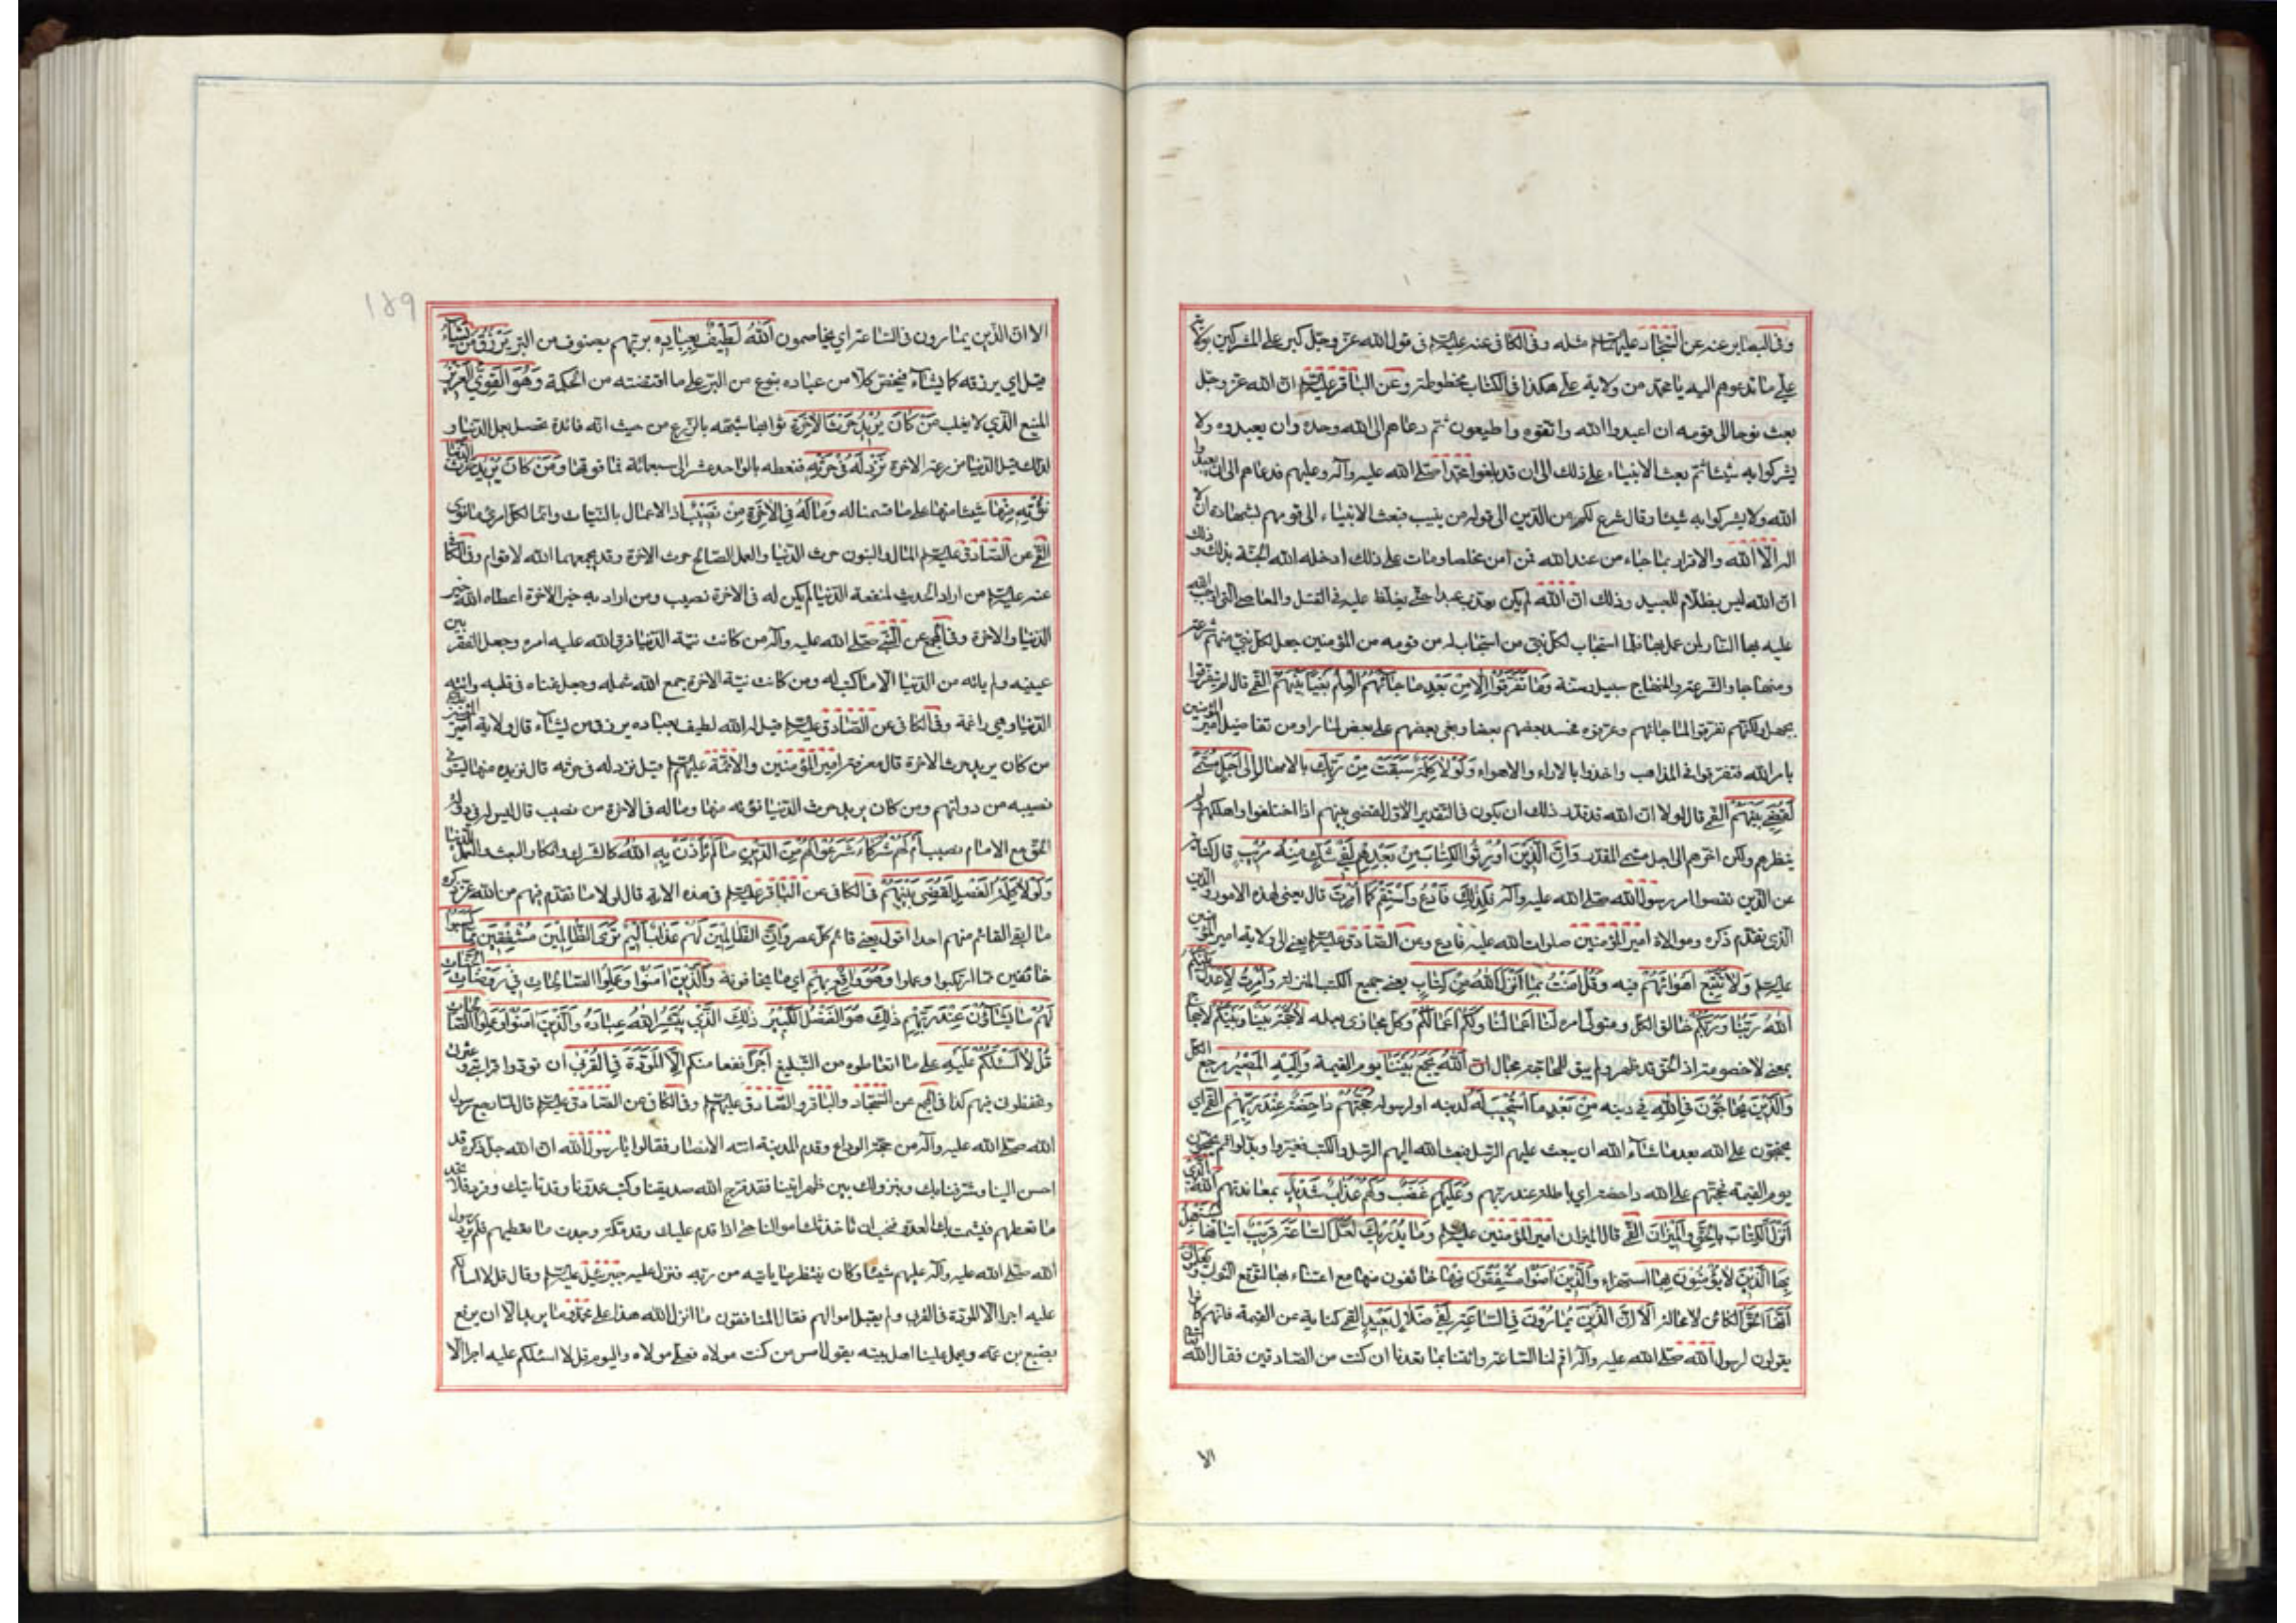 وفى البصاير عنه عن السجاد عليهما السلم مثله وفى الكافى عنه عليه السلم فى قول الله عز وجل كبر على المشركين بولاية
على ما تدعوهم اليه يا محمد من ولاية على هكذا فى الكتاب مخطوطة وعن الباقر عليه السلم ان الله عز وجل
بعث نوحا الى قومه ان اعبدوا الله واتقوه واطيعون ثم دعاهم الى الله وحده وان يعبدوه ولا
يشركوا به شيئا ثم بعث الانبياء على ذلك الى ان قد بلغوا محمدا صلى الله عليه وآله وعليهم فدعاهم الى ان يعبدوا
الله ولا يشركوا به شيئا وقال شرع لكم من الدين الى قوله من ينيب فبعث الانبياء الى قومهم بشهادة ان لا
اله الا الله والاقرار بما جاء من عند الله فمن امن مخلصا ومات على ذلك ادخله الله الجنة بذلك و ذلك
ان الله ليس بظلام للعبيد وذلك ان الله لم يكن يعذب عبدا حتى يغلظ عليه فى القتل والمعاصى التى اوجب الله
عليه بها النار لمن عمل بها فلما استجاب لكل نبى من استجاب له من قومه من المؤمنين جعل لكل نبى منهم شرعة
ومنهاجا والشرعة والمنهاج سبيل وسنة وَمَا تَفَرَّقُوا اِلَّا مِنْ بَعْدِ مَا جَائَهُمُ الْعِلْمُ بَغْيًا بَيْنَهُمْ القمى قال لم يتفرقوا
بجهل ولكنهم تفرقوا لما جائهم وعرفوه فحسد بعضهم بعضا وبغى بعضهم على بعض لما راوا من تفاضيل امير المؤمنين
بامر الله فتفرقوا فى المذاهب واخذوا بالاراء والاهواء وَلَوْلَا كَلِمَةٌ سَبَقَتْ مِنْ رَبِّكَ بالامهال اِلَى اَجَلٍ مُسَمًّى
لَقُضِىَ بَيْنَهُمْ القمى قال لولا ان الله قد قدر ذلك ان يكون فى التقدير الاول لقضى بينهم اذا اختلفوا واهلكهم ولم
ينظرهم ولكن اخرهم الى اجل مسمى المقدر وَاِنَّ الَّذِينَ اُورِثُوا الْكِتَابَ مِنْ بَعْدِهِمْ لَفِى شَكٍّ مِنْهُ مُرِيبٍ قال كناية
عن الذين نقضوا امر رسول الله صلى الله عليه وآله فَلِذَلِكَ فَادْعُ وَاسْتَقِمْ كَمَا اُمِرْتَ قال يعنى لهذه الامور والدين
الذى تقدم ذكره وموالاة امير المؤمنين صلوات الله عليه فادع وعن الصادق عليه السلم يعنى الى ولاية امير المؤمنين
عليه السلم وَلَا تَتَّبِعْ اَهْوَائَهُمْ فيه وَقُلْ اٰمَنْتُ بِمَا اَنْزَلَ اللهُ مِنْ كِتَابٍ يعنى جميع الكتب المنزلة وَاُمِرْتُ لِاَعْدِلَ بَيْنَكُمُ
اللهُ رَبُّنَا وَرَبُّكُمْ خالق الكل ومتولى امره لَنَا اَعْمَالُنَا وَلَكُمْ اَعْمَالُكُمْ وكل مجازى بعمله لَا حُجَّةَ بَيْنَنَا وَبَيْنَكُمْ لا حجاج
بمعنى لا خصومة اذ الحق قد ظهر ولم يبق للمحاجة مجال اَللهُ يَجْمَعُ بَيْنَنَا يوم القيمة وَاِلَيْهِ الْمَصِيرُ مرجع الكل
وَالَّذِينَ يُحَاجُّونَ فِى اللهِ فى دينه مِنْ بَعْدِ مَا اسْتُجِيبَ لَهُ لدينه او لرسوله حُجَّتُهُمْ دَاحِضَةٌ عِنْدَ رَبِّهِمْ القمى اى
يحتجون على الله بعد ما شاء الله ان يبعث عليهم الرسل فبعث الله اليهم الرسل والكتب فغيروا وبدلوا ثم يحتجون
يوم القيمة فحجتهم على الله داحضة اى باطلة عند ربهم وَعَلَيْهِمْ غَضَبٌ وَلَهُمْ عَذَابٌ شَدِيدٌ بمعاندتهم اَللهُ الَّذِى
اَنْزَلَ الْكِتَابَ بِالْحَقِّ وَالْمِيزَانَ القمى قال الميزان امير المؤمنين عليه السلم وَمَا يُدْرِيكَ لَعَلَّ السَّاعَةَ قَرِيبٌ اتيانها يَسْتَعْجِلُ
بِهَا الَّذِينَ لَا يُؤْمِنُونَ بِهَا استهزاء وَالَّذِينَ اٰمَنُوا مُشْفِقُونَ مِنْهَا خائفون منها مع اعتناء بها لتوقع الثواب وَيَعْلَمُونَ
اَنَّهَا الْحَقُّ الكائن لا محالة اَلَا اِنَّ الَّذِينَ يُمَارُونَ فِى السَّاعَةِ لَفِى ضَلَالٍ بَعِيدٍ القمى كناية عن القيمة فانهم كانوا
يقولون لرسول الله صلى الله عليه وآله اقم لنا الساعة وائتنا بما تعدنا ان كنت من الصادقين فقال الله
الا
١٥٩
الا ان الذين يمارون فى الساعة اى يخاصمون اَللهُ لَطِيفٌ بِعِبَادِهِ بربهم بصنوف من البر يَرْزُقُ مَنْ يَشَاءُ
قيل اى يرزقه كما يشاء فيخص كلا من عباده بنوع من البر على ما اقتضته من الحكمة وَهُوَ الْقَوِىُّ الْعَزِيزُ
المنيع الذى لا يغلب مَنْ كَانَ يُرِيدُ حَرْثَ الْاٰخِرَةِ ثوابها شبهه بالزرع من حيث انه فائدة تحصل بعمل الدنيا و
لذلك قيل الدنيا مزرعة الاخرة نَزِدْ لَهُ فِى حَرْثِهِ فنعطه بالواحد عشر الى سبعمائة فما فوقها وَمَنْ كَانَ يُرِيدُ حَرْثَ الدُّنْيَا
نُؤْتِهِ مِنْهَا شيئا منها على ما قسمنا له وَمَا لَهُ فِى الْاٰخِرَةِ مِنْ نَصِيبٍ اذ الاعمال بالنيات وانما لكل امرئ ما نوى
القمى عن الصادق عليه السلم المال والبنون حرث الدنيا والعمل الصالح حرث الاخرة وقد يجمعهما الله لاقوام وفى الكافى
عنه عليه السلم من اراد الحديث لمنفعة الدنيا لم يكن له فى الاخرة نصيب ومن اراد به خير الاخرة اعطاه الله خير
الدنيا والاخرة وفى المجمع عن النبى صلى الله عليه وآله من كانت نيته الدنيا فرق الله عليه امره وجعل الفقر بين
عينيه ولم ياته من الدنيا الا ما كتب له ومن كانت نيته الاخرة جمع الله شمله وجعل غناه فى قلبه واتته
الدنيا وهى راغمة وفى الكافى عن الصادق عليه السلم قيل له الله لطيف بعباده يرزق من يشاء قال ولاية امير المؤمنين
من كان يريد حرث الاخرة قال معرفة امير المؤمنين والائمة عليهم السلم قيل نزد له فى حرثه قال نزيده منها يستوفى
نصيبه من دولتهم ومن كان يريد حرث الدنيا نؤته منها وماله فى الاخرة من نصيب قال ليس له فى دولة
الحق مع الامام نصيب اَمْ لَهُمْ شُرَكَاءُ شَرَعُوا لَهُمْ مِنَ الدِّينِ مَا لَمْ يَأْذَنْ بِهِ اللهُ كالشرك وانكار البعث والعمل للدنيا
وَلَوْلَا كَلِمَةُ الْفَصْلِ لَقُضِىَ بَيْنَهُمْ فى الكافى عن الباقر عليه السلم فى هذه الاية قال لولا ما تقدم فيهم من الله عز ذكره
ما ابقى القائم منهم احدا اقول يعنى قائم كل عصر وَاِنَّ الظَّالِمِينَ لَهُمْ عَذَابٌ اَلِيمٌ تَرَى الظَّالِمِينَ مُشْفِقِينَ مِمَّا كَسَبُوا
خائفين مما ارتكبوا وعملوا وَهُوَ وَاقِعٌ بِهِمْ اى ما يخافونه وَالَّذِينَ اٰمَنُوا وَعَمِلُوا الصَّالِحَاتِ فِى رَوْضَاتِ الْجَنَّاتِ
لَهُمْ مَا يَشَاؤُنَ عِنْدَ رَبِّهِمْ ذَلِكَ هُوَ الْفَضْلُ الْكَبِيرُ ذَلِكَ الَّذِى يُبَشِّرُ اللهُ عِبَادَهُ الَّذِينَ اٰمَنُوا وَعَمِلُوا الصَّالِحَاتِ
قُلْ لَا اَسْئَلُكُمْ عَلَيْهِ على ما اتعاطوه من التبليغ اَجْرًا نفعا منكم اِلَّا الْمَوَدَّةَ فِى الْقُرْبَى ان تودوا قرابتى وعترتى
وتحفظونى فيهم كذا فى المجمع عن السجاد والباقر والصادق عليهم السلم وفى الكافى عن الصادق عليه السلم قال لما رجع رسول
الله صلى الله عليه وآله من حجة الوداع وقدم المدينة اتته الانصار فقالوا يا رسول الله ان الله جل ذكره قد
احسن الينا وشرفنا بك وبنزولك بين ظهرانينا فقد فرح الله صديقنا وكبت عدونا وقد تاتيك وفود فلا تجد
ما تعطيهم فيشمت بك العدو فنحب ان تاخذ ثلث اموالنا حتى اذا قدم عليك وفد مكة وجدت ما تعطيهم فلم يرد رسول
الله صلى الله عليه وآله عليهم شيئا وكان ينتظر ما ياتيه من ربه فنزل عليه جبرئيل عليه السلم وقال قل لا اسالكم
عليه اجرا الا المودة فى القربى ولم يقبل اموالهم فقال المنافقون ما انزل الله هذا على محمد وما يريد الا ان يرفع
بضبع بن عمه ويحمل علينا اهل بيته يقول امس من كنت مولاه فعلى مولاه واليوم قل لا اسئلكم عليه اجرا الا